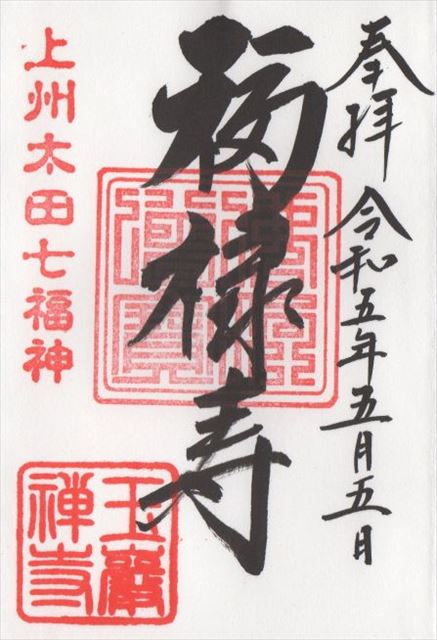 奉拝 令和五年五月五日
福禄寿
上州太田七福神
玉巖
禪寺